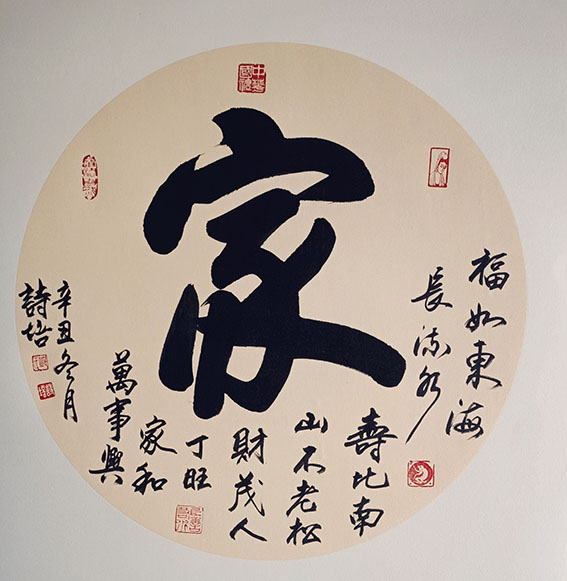 家
福如東海
長流水
壽比南
山不老松
財茂人
丁旺
家和
萬事興
辛丑冬月
詩培
中華
國禮